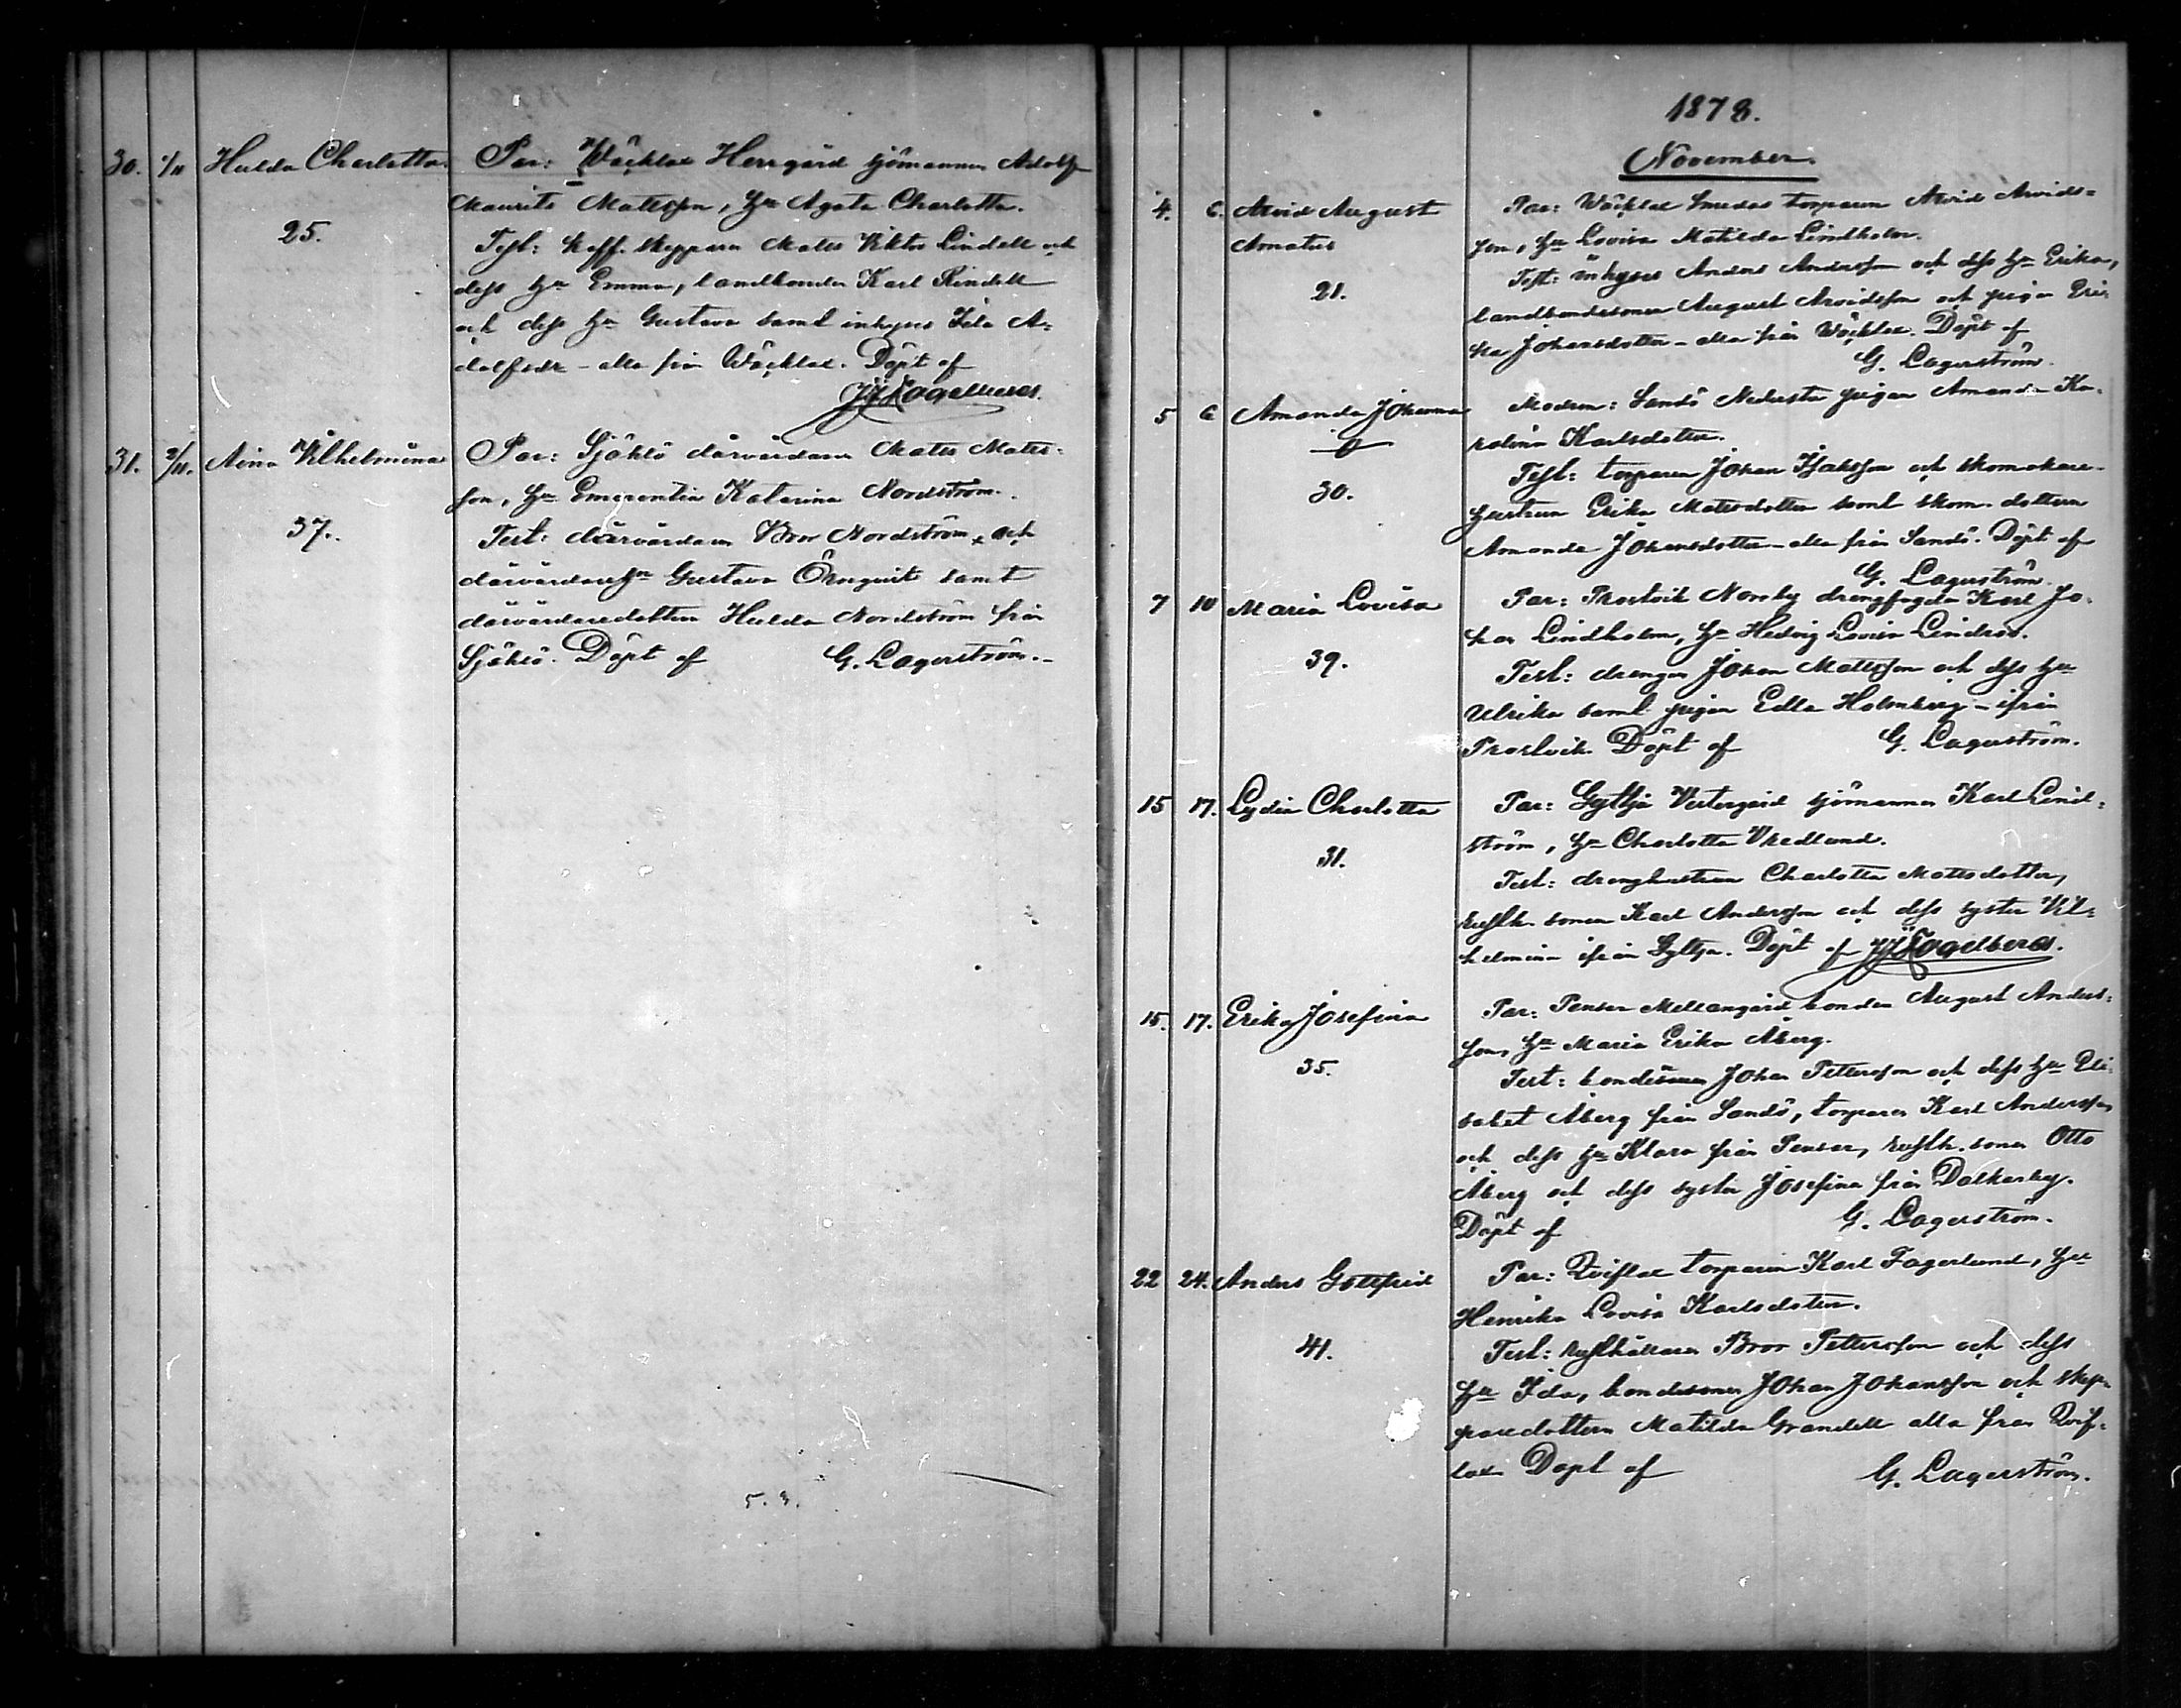 30. 1/11 Hulda Charlotta.
25.
Par: Wäcklax Herrgård sjömannen Adolf
Maurits Matsson, Hu Agata Charlotta.
Test: koff. skepparn Mats Viktor Lindell och
dess hu Emma, landbonden Karl Rindell
och dess hu Gustava samt inhyses Ida A-
dolfsdr - alla från Wäcklax. Döpt af
31. 2/11. Aina Vilhelmina
37.
Par: Sjöklö dårvårdaren Mats Mats-
son, Hu Emerentia Katarina Nordström.
Test: dårvårdaren Bror Nordström och
dårvårdarehu Gustava Örnqvist samt
dårvårdaredottren Hulda Nordström från
Sjöhlö. Döpt af G. Lagerström.
5. 3.
1878.
November.
4. 6. Arvid August
Amatus
21.
Par: Wäcklax Smedas torparen Arvid Arvids-
son, hu Lovisa Matilda Lindholm.
Test: inhyses Anders Andersson och dess hu Erika,
landbondesonen August Arvidsson och pigan Eri-
ka Johansdotter - alla från Wäcklax. Döpt af
G. Lagerström.
5 6 Amanda Johanna
30.
Modren: Sandö Nedersta pigan Amanda Ka-
rolina Karlsdotter.
Test: torparen Johan Isaksson och skomakare-
hustrun Erika Matsdotter samt skom. dottern
Amanda Johansdotter - alla från Sandö. Döpt af
G. Lagerström.
7 10 Maria Lovisa
39.
Par: Prostvik Norrby drengfogden Karl Jo-
han Lindholm, hu Hedvig Lovisa Lindroos.
Test: drengen Johan Mattsson och dess hu
Ulrika samt pigan Edla Holmberg - ifrån
Prostvik. Döpt af G. Lagerström.
15 17. Lydia Charlotta
31.
Par: Gyttja Vestergård sjömannen Karl Lind-
ström, hu Charlotta Vredlund.
Test: drenghustrun Charlotta Mattsdotter,
rusth. sonen Karl Andersson och dess syster Vil-
helmina ifrån Gyttja. Döpt af JJ Fogelberg.
15. 17. Erika Josefina
35.
Par: Pensar Mellangård bonden August Anders-
son, hu Maria Erika Åberg.
Test: bondesonen Johan Pettersson och dess hu Eli-
sabet Åberg från Sandö, torparen Karl Andersson
och dess hu Klara från Pensar, rusth. sonen Otto
Åberg och dess syster Josefina från Dalkarby.
Döpt af G. Lagerström.
22 24. Anders Gottfrid
41.
Par: Qviflax torparen Karl Fagerlund, hu
Henrika Lovisa Karlsdotter.
Test: rusthållaren Bror Pettersson och dess
hu Ida, bondesonen Johan Johansson och skep-
paredottern Matilda Grandell alla från Qvif-
lax. Döpt af G. Lagerström.